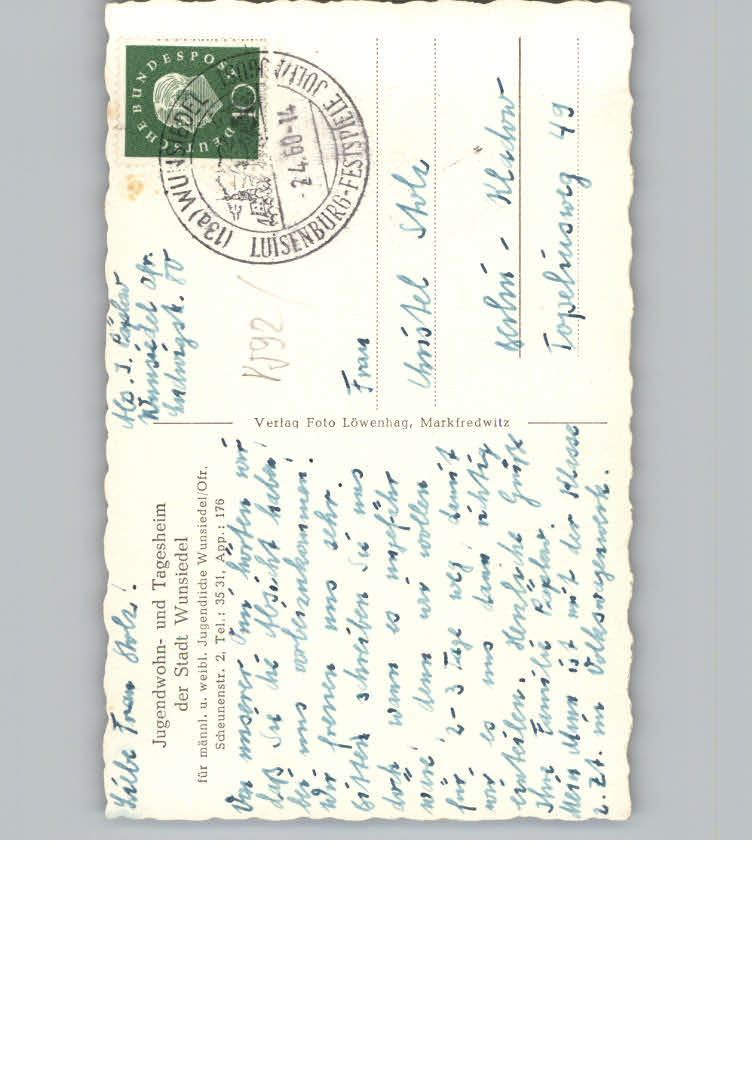 Liebe Frau Stolz!
Jugendwohn- und Tagesheim
der Stadt Wunsiedel
für männl. u. weibl. Jugendliche Wunsiedel/Ofr.
Scheunenstr. 2, Tel.: 35 31, App.: 176
Von unserer hörten wir
daß Sie die Absicht haben,
bei uns vorbeizukommen.
Wir freuen uns sehr.
Bitte schreiben Sie uns
doch wann es ungefähr
wäre, denn wir wollen
für 2-3 Tage weg, damit
wir es uns dann richtig
einteilen. Herzliche Grüße
Ihre Familie
Mein Mann ist mit der Klasse
z. Zt. im Volkswagenwerk.
Verlag Foto Löwenhag, Markfredwitz
Abs. I.
Wunsiedel Ofr.
Ludwigstr. 80
KJ92/
DEUTSCHE BUNDESPOST
10
(13a) WUNSIEDEL
LUISENBURG-FESTSPIELE JULI/AUGUST
-2.4.60-14
Frau
Christel Stolz
Berlin - Kladow
Topeliusweg 49